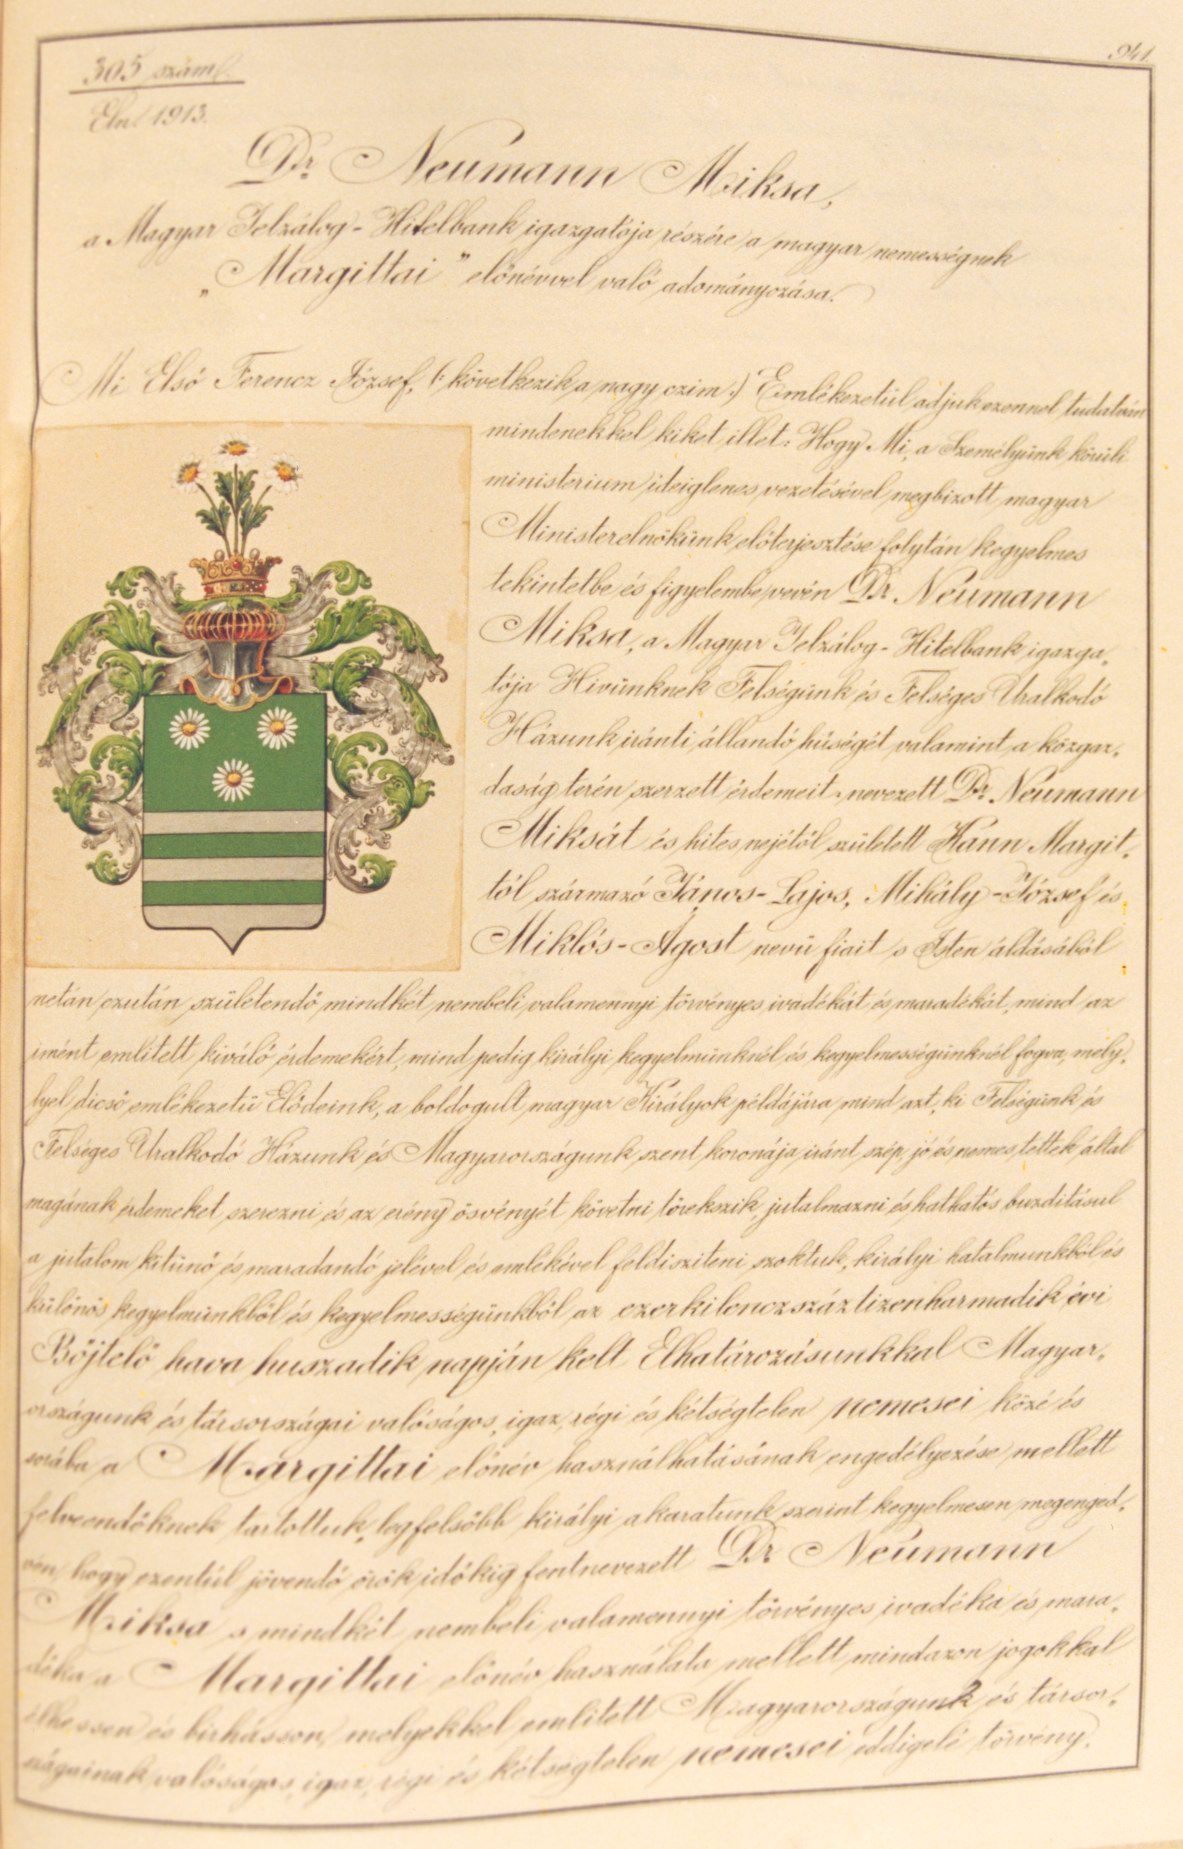 305 szám
Eln. 1913.
941
Dr. Neumann Miksa,
a Magyar Jelzálog-Hitelbank igazgatója részére a magyar nemességnek
„Margittai” előnévvel való adományozása.
Mi Első Ferencz József, (: következik a nagy czím :) Emlékezetül adjuk ezennel tudatván
mindenekkel kiket illet: Hogy Mi, a Személyünk körüli
ministerium ideiglenes vezetésével megbizott magyar
Ministerelnökünk előterjesztése folytán kegyelmes
tekintetbe és figyelembe vevén Dr. Neumann
Miksa, a Magyar Jelzálog-Hitelbank igazga„
tója Hivünknek Felségünk és Felséges Uralkodó
Házunk iránti állandó hűségét valamint a közgaz„
daság terén szerzett érdemeit, nevezett Dr. Neumann
Miksát és hites nejétől született Hann Margit„
tól származó János-Lajos, Mihály-József és
Miklós-Ágost nevü fiait s Isten áldásából
netán ezután születendő mindkét nembeli valamennyi törvényes ivadékát és maradékát, mind az
imént emlitett kiváló érdemekért, mind pedig királyi kegyelmünknél és kegyelmességünknél fogva, mély„
lyel dicső emlékezetü Elődeink, a boldogult magyar Királyok példájára mind azt, ki Felségünk és
Felséges Uralkodó Házunk és Magyarországunk szent koronája iránt szép, jó és nemes tettek által
magának érdemeket szerezni és az erény ösvényét követni törekszik, jutalmazni és hathatós buzditásul
a jutalom kitünő és maradandó jelével és emlékével feldisziteni szoktuk, királyi hatalmunkból és
különös kegyelmünkből és kegyelmességünkből az ezerkilenczszáztizenharmadik évi
Bőjtelő hava huszadik napján kelt Elhatározásunkkal Magyar„
országunk és társországai valóságos, igaz, régi és kétségtelen nemesei közé és
sorába a Margittai előnév használhatásának engedélyezése mellett
felveendőknek tartottuk, legfelsőbb királyi akaratunk szerint kegyelmesen megenged„
vén, hogy ezentúl jövendő örök időkig fentnevezett Dr Neumann
Miksa s mindkét nembeli valamennyi törvényes ivadéka és mara„
déka a Margittai előnév használata mellett mindazon jogokkal
élhessen és birhasson, melyekkel emlitett Magyarországunk és társor„
szágainak valóságos, igaz, régi és kétségtelen nemesei eddigelé törvény„